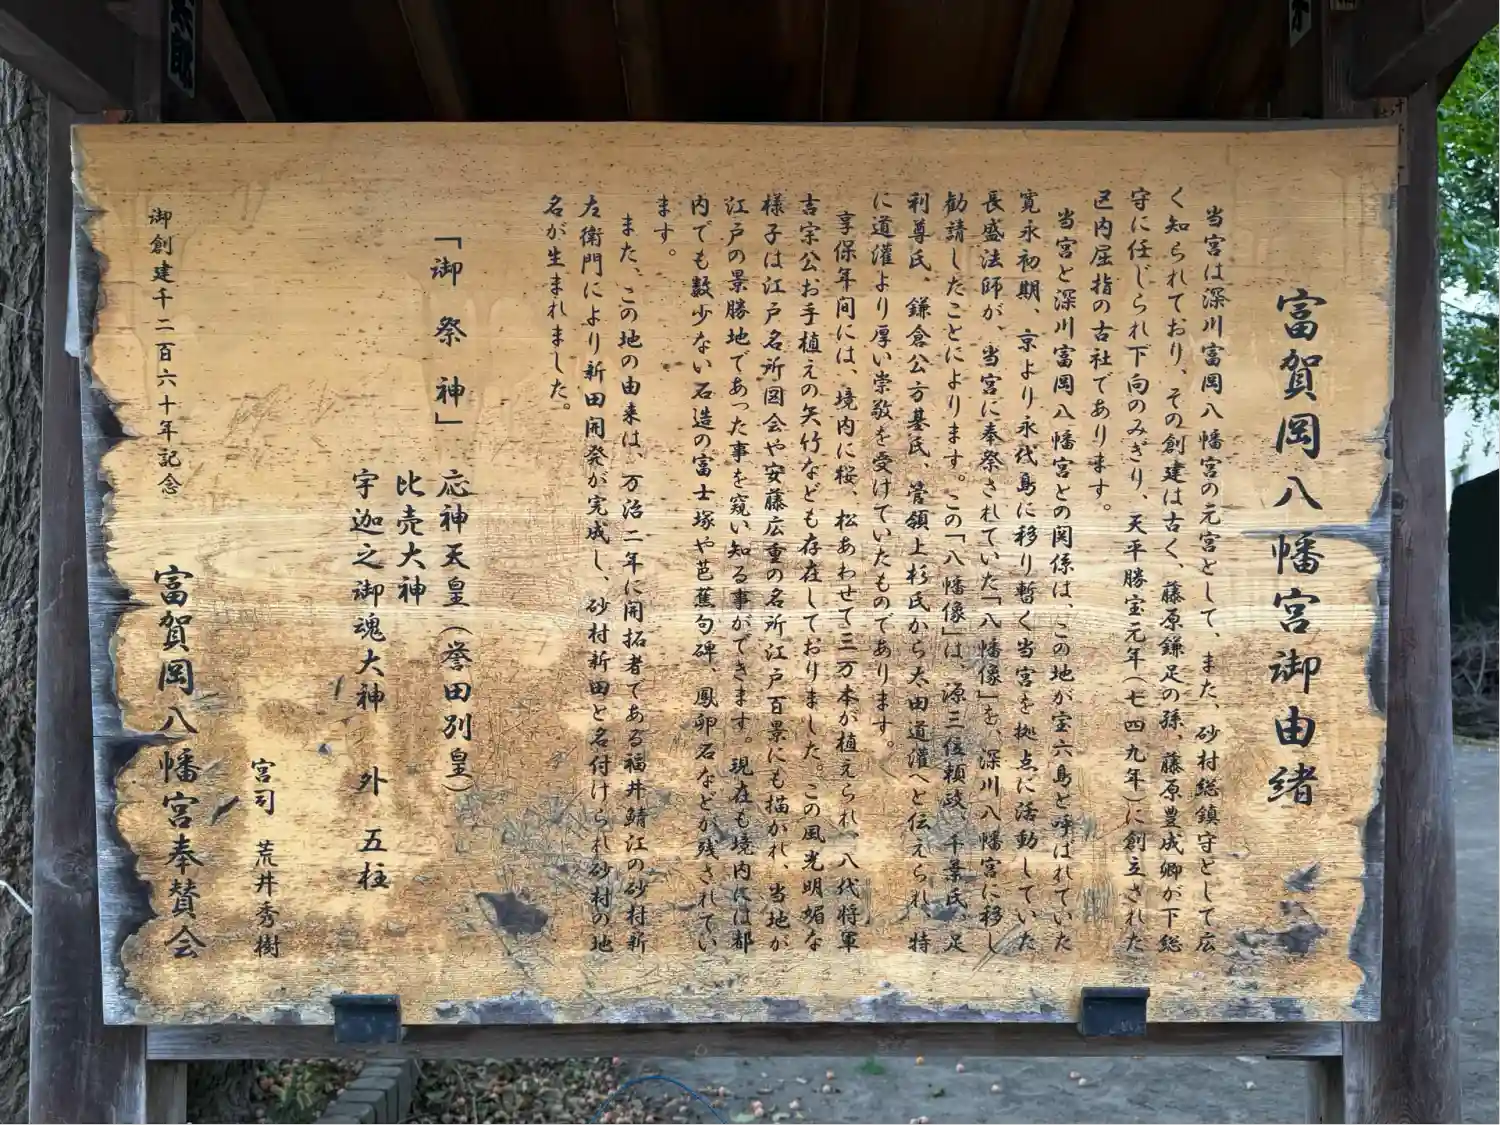 富賀岡八幡宮御由緒
当宮は深川富岡八幡宮の元宮として、また、砂村総鎮守として広
く知られており、その創建は古く、藤原鎌足の孫、藤原豊成卿が下総
守に任じられ下向のみぎり、天平勝宝元年(七四九年)に創立された
区内屈指の古社であります。
当宮と深川富岡八幡宮との関係は、この地が宝六島と呼ばれていた
寛永初期、京より永代島に移り暫く当宮を拠点に活動していた
長盛法師が、当宮に奉祭されていた「八幡像」を、深川八幡宮に移し
勧請したことによります。この「八幡像」は、源三位頼政、千葉氏、足
利尊氏、鎌倉公方基氏、管領上杉氏から太田道灌へと伝えられ、特
に道灌より厚い崇敬を受けていたものであります。
享保年间には、境内に桜、松あわせて三万本が植えられ、八代将軍
吉宗公お手植えの矢竹なども存在しておりました。この風光明媚な
様子は江戸名所図会や安藤広重の名所江戸百景にも描かれ、当地が
江戸の景勝地であった事を窺い知る事ができます。現在も境内には都
内でも数少ない石造の富士塚や芭蕉句碑、鳳卵石などが残されてい
ます。
また、この地の由来は、万治二年に開拓者である福井鯖江の砂村新
左衛門により新田開発が完成し、砂村新田と名付けられ砂村の地
名が生まれました。
「御祭神」 応神天皇(誉田別皇)
比売大神
宇迦之御魂大神 外 五柱
宮司 荒井秀樹
御創建千二百六十年記念 富賀岡八幡宮奉賛会